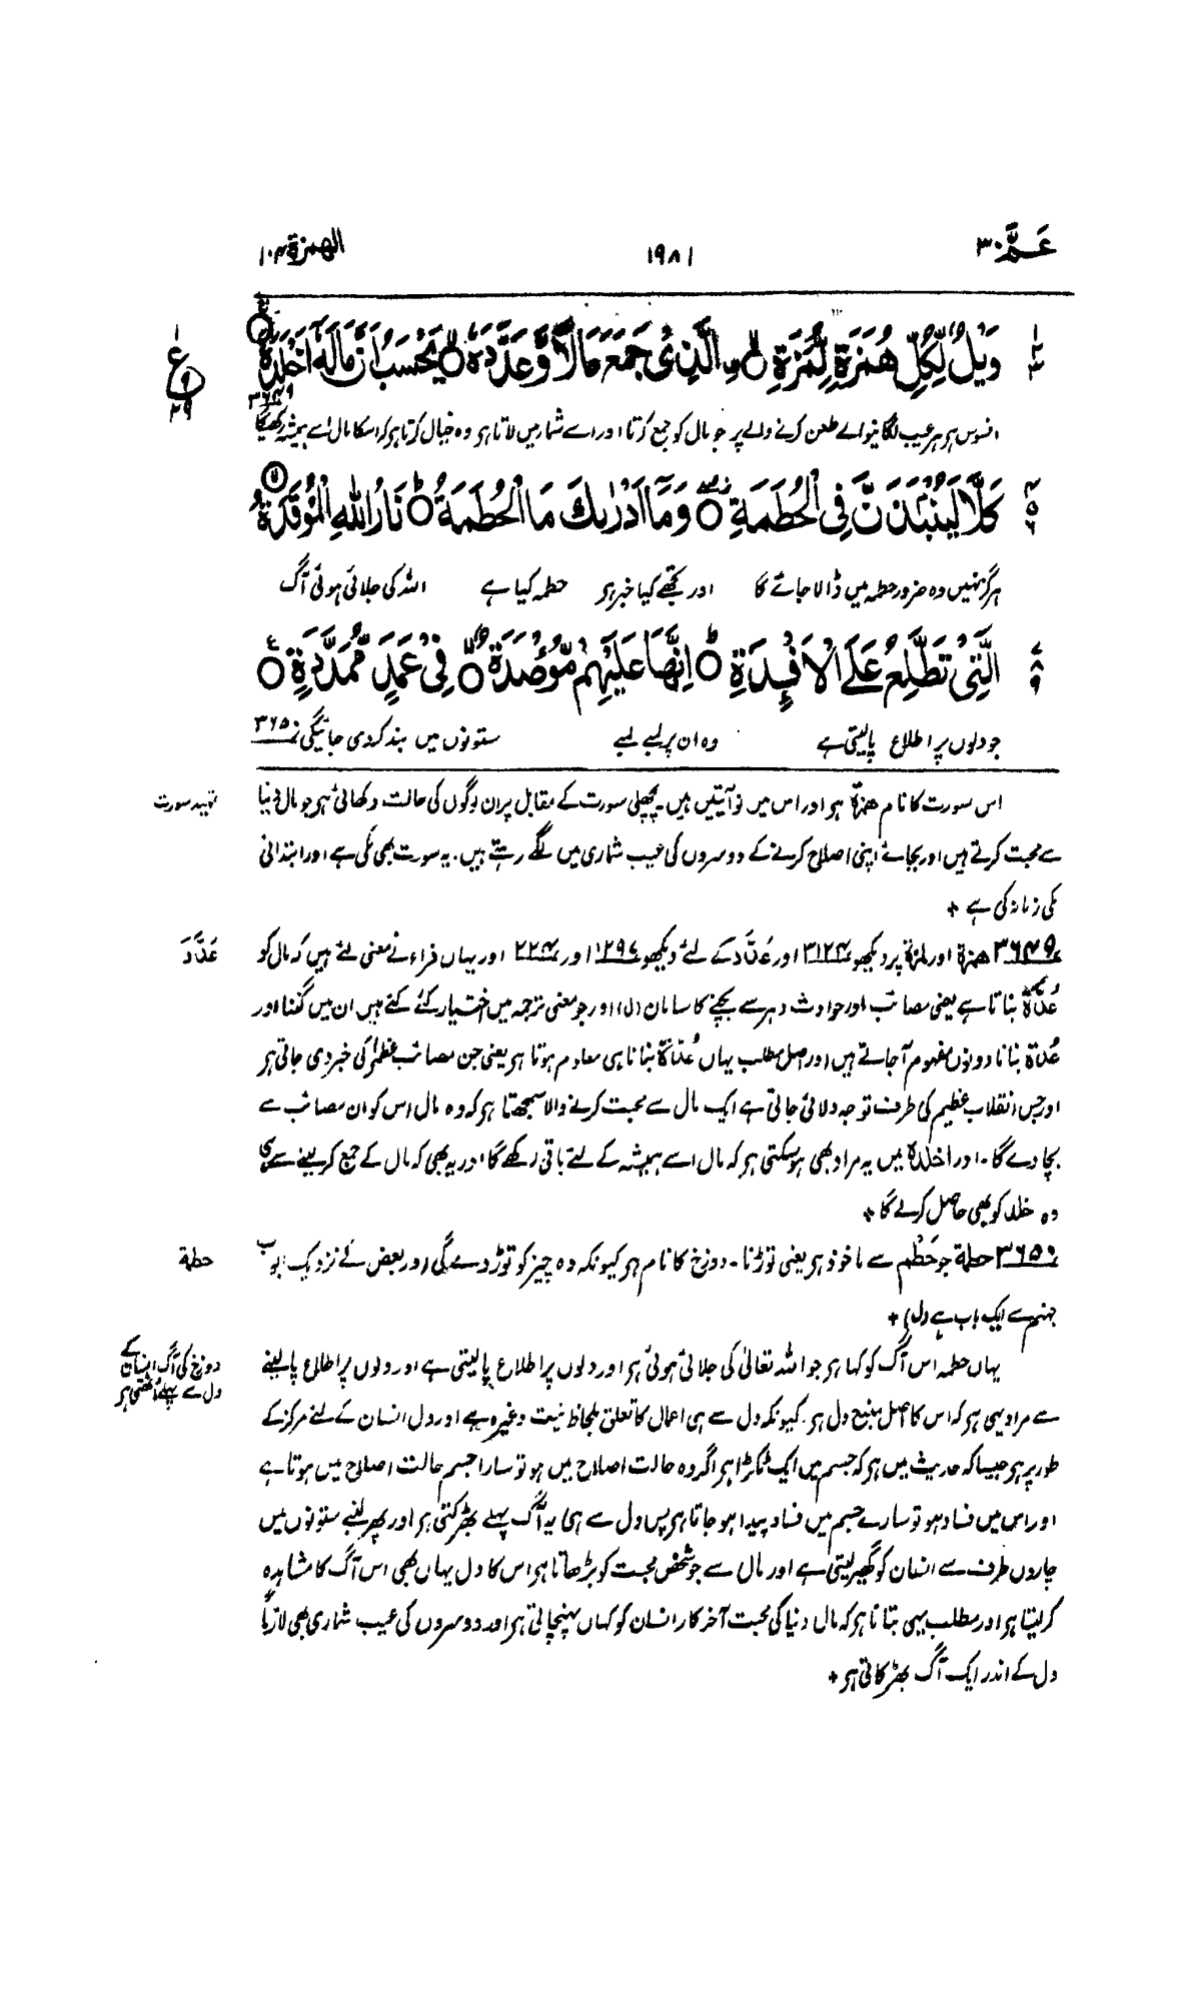 عَمَّ ۳۰
۱۹۸۱
الهمزة ۱۰۴
وَيْلٌ لِّكُلِّ هُمَزَةٍ لُّمَزَةٍ ۙ الَّذِیْ جَمَعَ مَالًا وَّعَدَّدَهٗ ۙ يَحْسَبُ اَنَّ مَالَهٗٓ اَخْلَدَهٗ ۳۶۴۹
افسوس ہر ہر عیب لگانیوالے طعن کرنے والے پر جو مال کو جمع کرتا اور اسے شمار میں لاتا ہر وہ خیال کرتا ہر کہ اسکا مال اسے ہمیشہ رکھیگا
كَلَّا لَيُنْۢبَذَنَّ فِی الْحُطَمَةِ ۖ وَمَآ اَدْرٰىكَ مَا الْحُطَمَةُ ؕ نَارُ اللّٰهِ الْمُوْقَدَةُ
ہرگز نہیں وہ ضرور حطمہ میں ڈالا جائے گا اور تجھے کیا خبر ہر حطمہ کیا ہے اللہ کی جلائی ہوئی آگ
الَّتِیْ تَطَّلِعُ عَلَی الْاَفْـِٕدَةِ ؕ اِنَّهَا عَلَيْهِمْ مُّؤْصَدَةٌ ۙ فِیْ عَمَدٍ مُّمَدَّدَةٍ
جو دلوں پر اطلاع پالیتی ہے وہ ان پر لمبے لمبے ستونوں میں بند کر دی جائیگی ۳۶۵۰
تمہید سورت
اس سورت کا نام همزة ہر اور اس میں نو آیتیں ہیں۔ پچھلی سورت کے مقابل پر ان لوگوں کی حالت دکھائی ہر جو مال دنیا
سے محبت کرتے ہیں اور بجائے اپنی اصلاح کرنے کے دوسروں کی عیب شماری میں لگے رہتے ہیں۔ یہ سورت بھی مکی ہے اور ابتدائی
مکی زمانہ کی ہے +
عَدَّدَ
۳۶۴۹ همزة اور لمزة پر دیکھو ۳۱۲۴ اور عَدَّدَ کے لئے دیکھو ۱۲۹۷ اور ۲۲۴۴ اور یہاں فراء نے معنی لئے ہیں کہ مال کو
عُدَّة بناتا ہے یعنی مصائب اور حوادث دہر سے بچنے کا سامان (ل) اور جو معنی ترجمہ میں اختیار کئے گئے ہیں ان میں گننا اور
عُدة بنانا دونوں مفہوم آجاتے ہیں اور اصل مطلب یہاں عُدّة بنانا ہی معلوم ہوتا ہر یعنی جن مصائب عظمیٰ کی خبر دی جاتی ہر
اور جس انقلاب عظیم کی طرف توجہ دلائی جاتی ہے ایک مال سے محبت کرنے والا سمجھتا ہر کہ وہ مال اس کو ان مصائب سے
بچا دے گا۔ اور اخلدہ میں یہ مراد بھی ہو سکتی ہر کہ مال اسے ہمیشہ کے لئے باقی رکھے گا اور یہ بھی کہ مال کے جمع کر لینے سے ہی
وہ خلد کو بھی حاصل کر لے گا +
حطمة
۳۶۵۰ حطمة جو حَطْم سے ماخوذ ہر یعنی توڑنا۔ دوزخ کا نام ہر کیونکہ وہ چیز کو توڑ دے گی اور بعض کے نزدیک ابواب
جہنم سے ایک باب ہے (ل) +
دوزخ کی آگ انسان کے
دل سے پہلے اٹھتی ہر
یہاں حطمہ اس آگ کو کہا ہر جو اللہ تعالیٰ کی جلائی ہوئی ہر اور دلوں پر اطلاع پالیتی ہے اور دلوں پر اطلاع پالینے
سے مراد یہی ہر کہ اس کا اصل منبع دل ہر۔ کیونکہ دل سے ہی اعمال کا تعلق بلحاظ نیت وغیرہ ہے اور دل انسان کے لئے مرکز کے
طور پر ہر جیسا کہ حدیث میں ہر کہ جسم میں ایک ٹکڑا ہر اگر وہ حالت اصلاح میں ہو تو سارا جسم حالت اصلاح میں ہوتا ہے
اور اس میں فساد ہو تو سارے جسم میں فساد پیدا ہو جاتا ہر پس دل سے ہی یہ آگ پہلے بھڑکتی ہر اور پھر لمبے ستونوں میں
چاروں طرف سے انسان کو گھیر لیتی ہے اور مال سے جو شخص محبت کو بڑھاتا ہر اس کا دل یہاں بھی اس آگ کا مشاہدہ
کر لیتا ہر اور مطلب یہی بتانا ہر کہ مال دنیا کی محبت آخر کار انسان کو کہاں پہنچاتی ہر اور دوسروں کی عیب شماری بھی لازماً
دل کے اندر ایک آگ بھڑکاتی ہر +